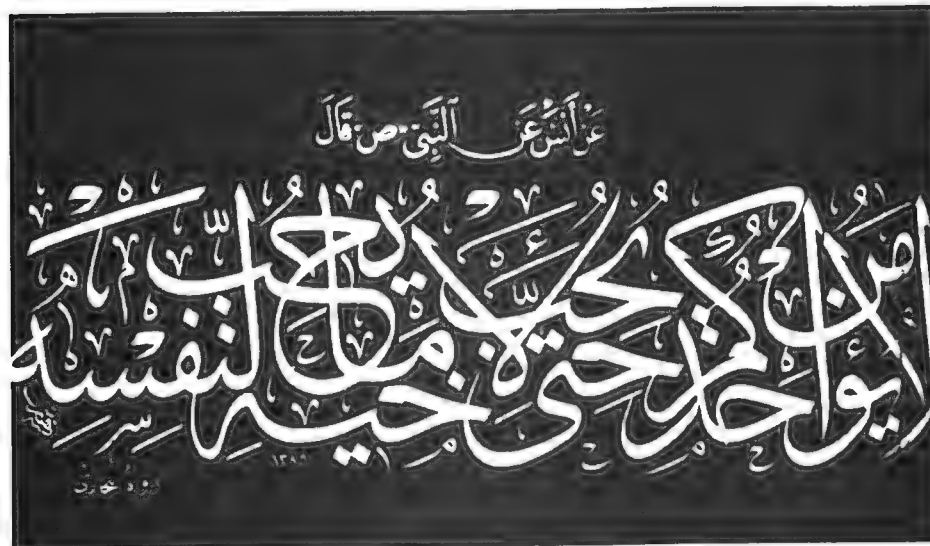 عَنْ أَنَسٍ عَنِ النَّبِيِّ ص قَالَ
لَا يُؤْمِنُ أَحَدُكُمْ حَتَّى يُحِبَّ لِأَخِيهِ مَا يُحِبُّ لِنَفْسِهِ
١٣٨٩
رواه بخاري